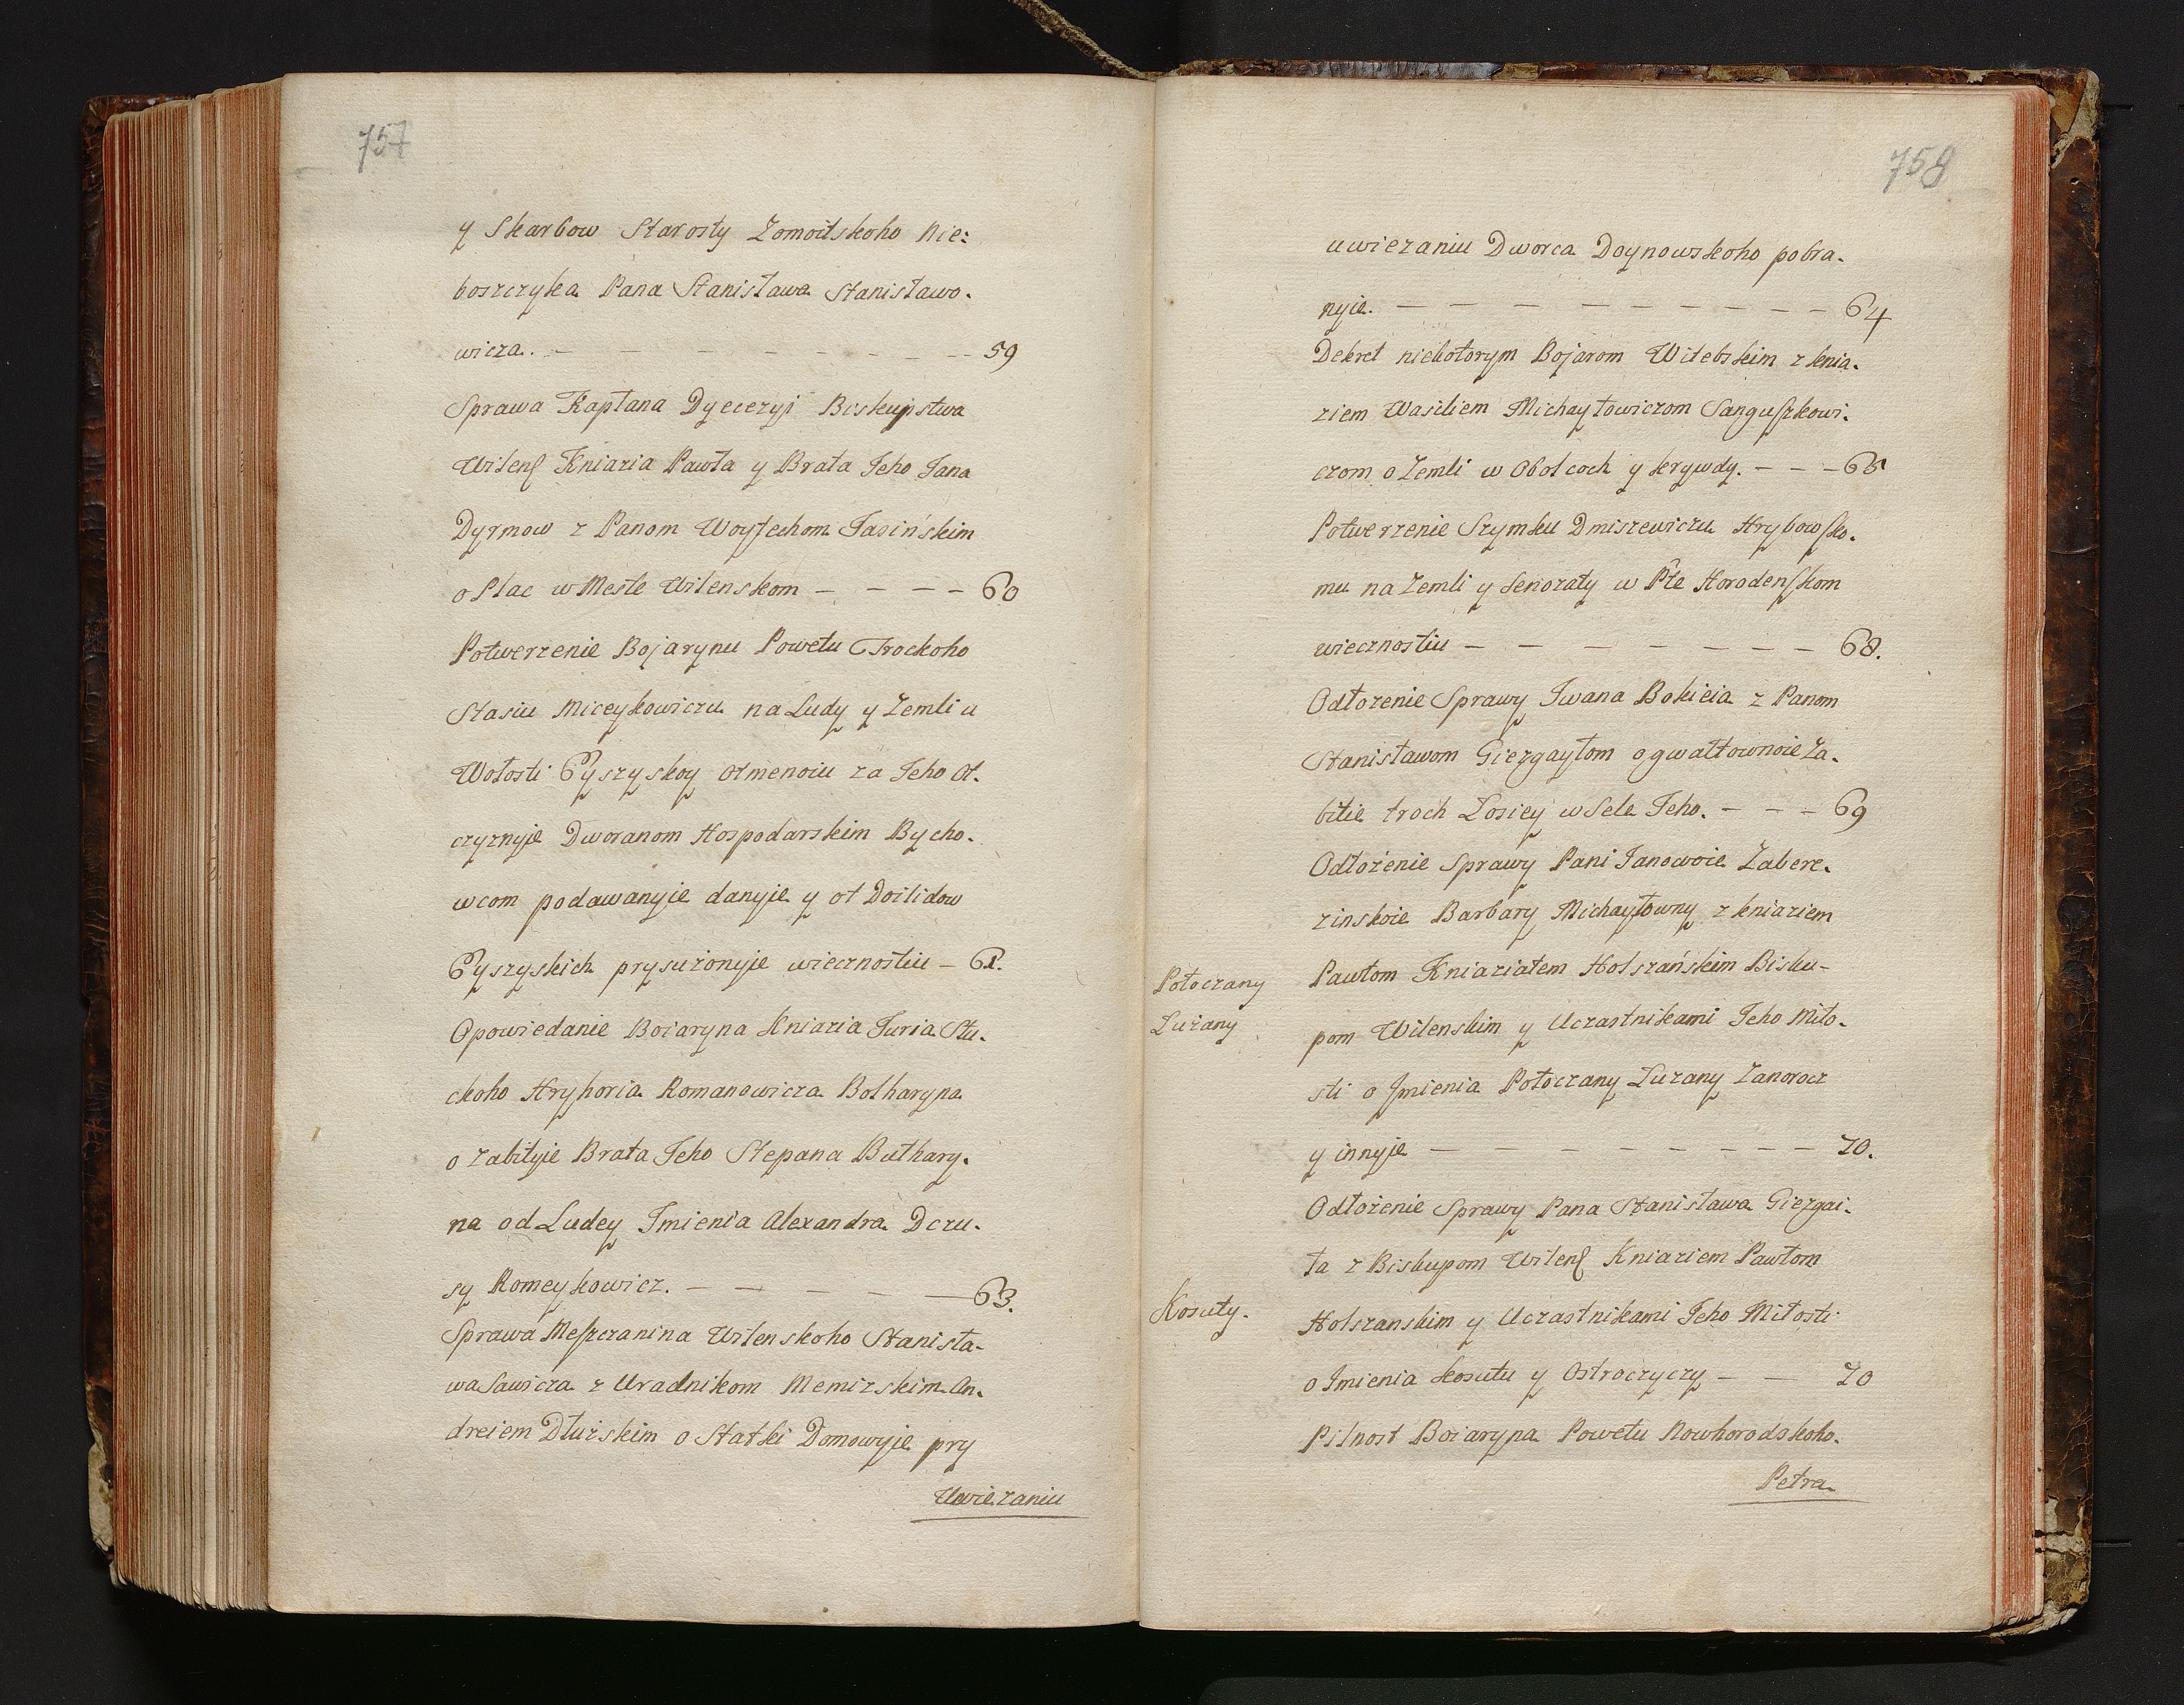 757
y Skarbow Starosty Zomoitskoho Nie:
boszczyka Pana Stanisława Stanisławo.
wicza. — — — — — — — — 59
Sprawa Kapłana Dyecezyi Biskupstwa
Wilenſ Kniazia Pawła y Brata Jeho Jana
Dyrmow z Panom Woyſechom Jasińskim
o Plac w Meste Wilenskom — — — — 60
Potwerzenie Bojarynu Powetu Trockoho
Stasiu Miceykowiczu na Ludy y Zemli u
Wołosti Eyszyskoy otmenoiu za Jeho Ot.
czyznyje Dworanom Hospodarskim Bycho.
wcom podawanyje danyje y ot Doilidow
Eyszyskich prysużonyje wiecznostiu — 61.
Opowiedanie Boiaryna Kniazia Juria Słu.
ckoho Hryhoria Romanowicza Bolharyna
o zabityie Brata Jeho Stepana Bulhary.
na od Ludey Imienia Alexandra Dczu.
sy Romeykowicz. — — — — — 63.
Sprawa Meſzczanina Wilenskoho Stanisła-
wa Sawicza z Uradnikom Memizskim An.
dreiem Dłuzskim o Statki Domowyje pry
Uwiezaniu
758
uwiezaniu Dworca Doynowskoho pobra.
nyie. — — — — — — — — — — 64
Dekret niekotorym Bojarom Witebskim z knia.
ziem Wasiliem Michayłowiczom Sanguſzkowi.
czom o Zemli w Obolcoch y krywdy. — — — 65
Potwerzenie Szymku Dmiszewiczu Hrybowſko.
mu na Zemli y Senozaty w Pte Horodenſkom
wiecznostiu — — — — — — — 68.
Odłozenie Sprawy Iwana Bokieia z Panom
Stanisławom Giezgayłom o gwałtownoie Za.
bitie troch Łosiey w Sele Jeho. — — — 69
Odłożenie Sprawy Pani Janowoie Zabere.
zinskoie Barbary Michayłowny z kniaziem
Potoczany
Pawłom Kniaziatem Holszańskim Bisku-
Luzany
pom Wilenskim y Uczastnikami Jeho Miło.
sti o Imienia Potoczany Luzany Zanorocz
y innyje — — — — — — — — 70.
Odłożenie Sprawy Pana Stanisława Giezgai.
ła z Biskupom Wilenſ Kniaziem Pawłom
Kosuty.
Holszanskim y Uczastnikami Jeho Miłosti
o Imienia Kosutu y Ostroczyczy — — 70
Pilnost Boiaryna Powetu Nowhorodskoho.
Petra